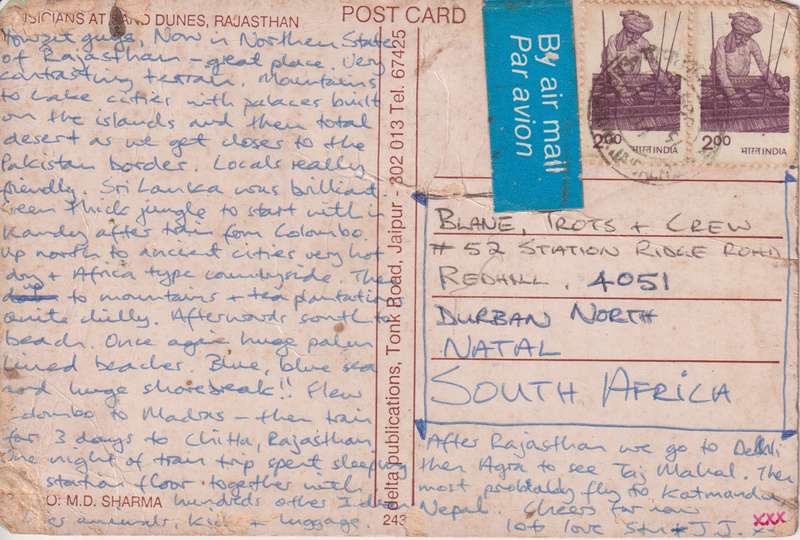 SICIANS AT SAND DUNES, RAJASTHAN
POST CARD
Howzit guys, Now in Northern State
of Rajasthan - great place. Very
contrasting terrain. Mountains
to lake cities with palaces built
on the islands and then total
desert as we get closer to the
Pakistan border. Locals really
friendly. Sri Lanka was brilliant.
Green thick jungle to start with in
Kandy after train from Colombo.
Up north to ancient cities very hot
dry + Africa type countryside. Then
up to mountains + tea plantation
quite chilly. Afterwards south to
beach. Once again huge palm
lined beaches. Blue, blue sea
and huge shorebreak!! Flew
Colombo to Madras - then train
for 3 days to Chitta, Rajasthan
One night of train trip spent sleeping
station floor together with
hundreds other
animals, + luggage.
O: M.D. SHARMA
delta publications, Tonk Road, Jaipur - 302 013 Tel. 67425
243
By air mail
Par avion
2.00
भारत INDIA
2.00
भारत INDIA
BLANE, TROTS + CREW
# 52 STATION RIDGE ROAD
REDHILL. 4051
DURBAN NORTH
NATAL
SOUTH AFRICA
After Rajasthan we go to Delhi
then Agra to see Taj Mahal. Then
most probably fly to Katmandu
Nepal Cheers for now
lots love J.J. xx
xxx